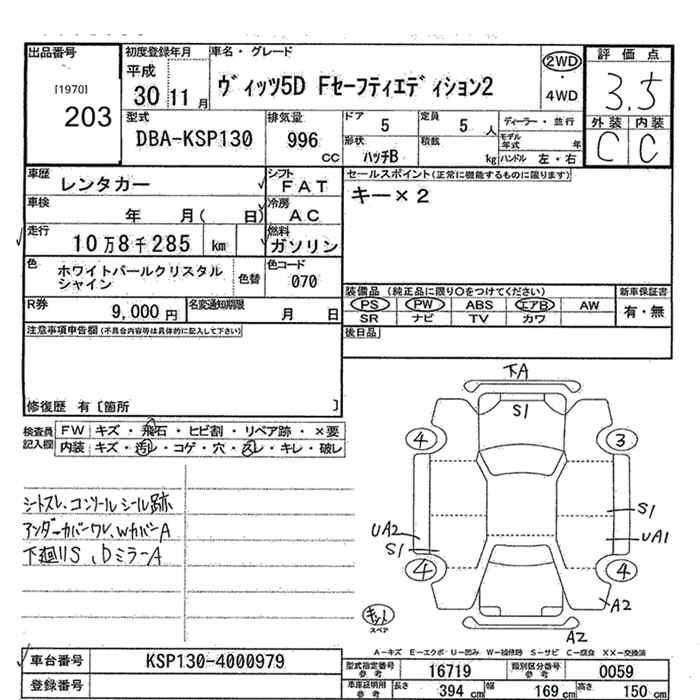 出品番号
[1970]
203
初度登録年月
平成
30 11 月
車名・グレード
ヴィッツ5D Fセーフティエディション2
2WD
・
4WD
評価点
3.5
外装 内装
C C
型式
DBA-KSP130
排気量
996
cc
ドア
5
定員
5 人
形状
ハッチB
積載
kg
ディーラー・並行
モデル年式 年
ハンドル 左・右
車歴
レンタカー
シフト
FAT
車検
年 月( 日)
冷房
AC
走行
10万8千285 km
燃料
ガソリン
色
ホワイトパールクリスタル
シャイン
色替
色コード
070
R券
9,000 円
名変通知期限
月 日
セールスポイント(正常に機能するものに限ります)
キー×2
装備品 (純正品に限り○をつけてください)
PS PW ABS エアB AW
SR ナビ TV カワ
新車保証書
有・無
後日品
注意事項申告欄(不具合内容等は具体的に記入して下さい)
修復歴 有〔箇所 〕
検査員
記入欄
FW キズ・飛石・ヒビ割・リペア跡・×要
内装 キズ・汚レ・コゲ・穴・スレ・キレ・破レ
シートスレ、コンソールシール跡
アンダーカバーワレ、WカバーA
下廻りS、DミラーA
下A
S1
4
3
S1
UA2
S1
UA1
4
4
A2
A2
キット
スペア
A-キズ E-エクボ U-凹み W-補修跡 S-サビ C-腐食 XX-交換済
車台番号 KSP130-4000979
登録番号
型式指定番号
参考
16719
類別区分番号
参考
0059
車庫証明用
参考
長さ 394 cm 幅 169 cm 高さ 150 cm